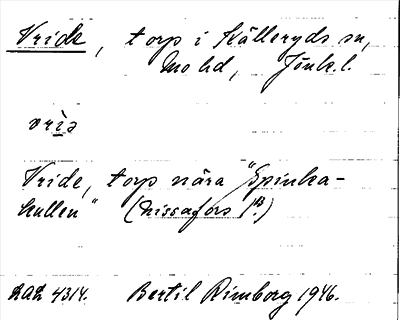 Vride, torp i Källeryds sn,
Mo hd, Jönk.l.
vriə
Vride, torp nära "Spinka-
kullen" (Nissafors 1B.)
ULMA 4314. Bertil Rimborg 1946.